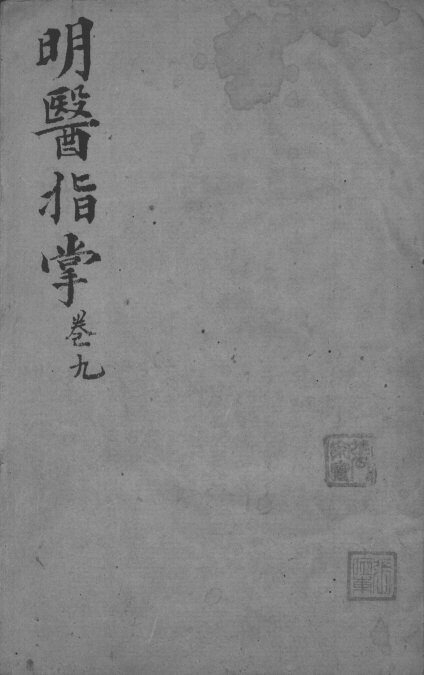 明醫指掌
卷九